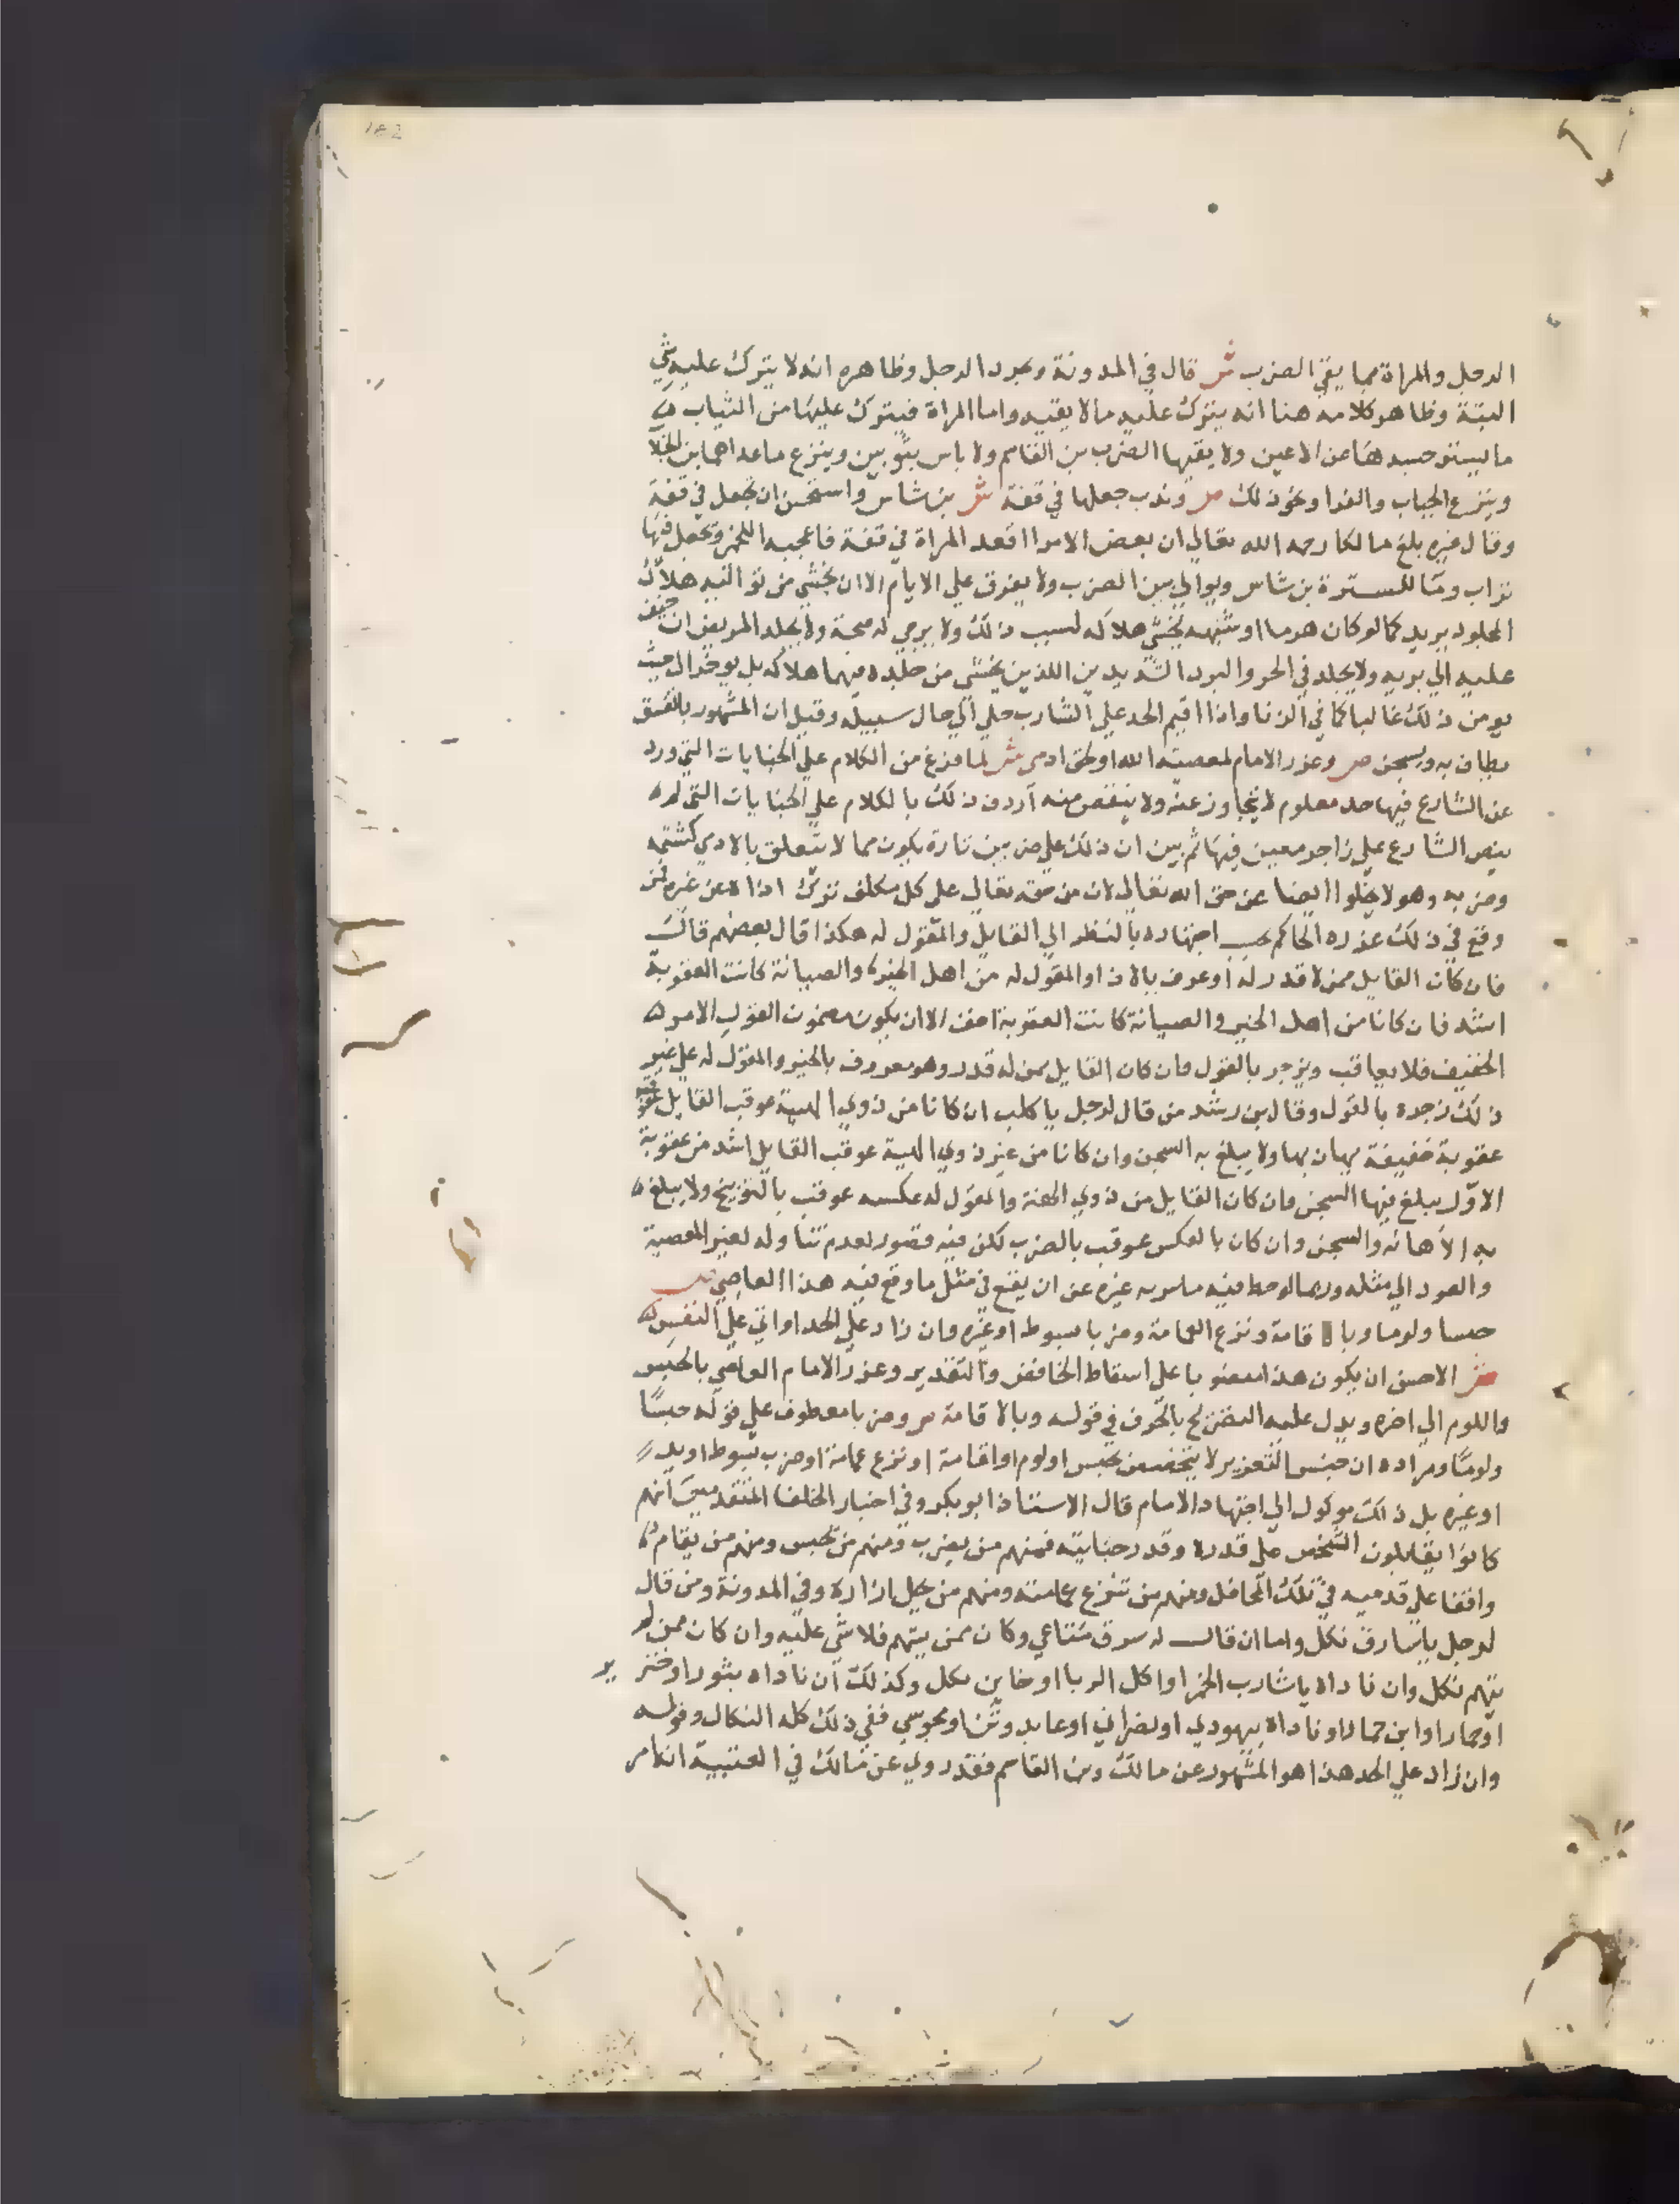 الرجل والمراة مما يقي الضرب ش قال في المدونة ويجرد الرجل وظاهره انه لا يترك عليه شي
البتة وظاهر كلامه هنا انه يترك عليه ما لا يقيه واما المراة فيترك عليها من الثياب
ما يستر جسدها من الاعين ولا يقيها الضرب بن القاسم ولا باس بثوبين وينزع ما عداهما بن الجلا
وينزع الجباب والفرا ونحو ذلك ص وندب جعلها في قفة ش بن شاس واستحسن ان تجعل في قفة
وقال غيره بلغ مالكا رحمه الله تعالي ان بعض الامرا اقعد المراة في قفة فاعجبه اللخمي وتجعل فيها
تراب وما للسترة بن شاس ويوالي بين الضرب ولا يفرق علي الايام الا ان يخشي من تواليه هلاك
المجلود يريد كما لو كان هرما او شبهه يخشي هلاكه لسبب ذلك ولا يرجي له صحة ولا يجلد المريض ان خيف
عليه الي بريه ولا يجلد في الحر والبرد الشديدين اللذين يخشي من جلده فيهما هلاكه بل يوخر الي حيث
يومن ذلك غالبا كما في الزنا واذا اقيم الحد علي الشارب خلي الي حال سبيله وقيل ان المشهور بالفسق
يطاف به ويسجن ص وعزر الامام لمعصية الله او لحق ادمي ش لما فرغ من الكلام علي الجنايات التي ورد
عن الشارع فيها حد معلوم لا يتجاوز عنه ولا ينقص منه اردف ذلك بالكلام علي الجنايات التي لم
ينص الشارع علي زاجر معين فيها ثم بين ان ذلك علي ضربين تارة يكون مما لا يتعلق بالادمي كشتمه
وضربه وهو لا يخلوا ايضا عن حق الله تعالي لان من حقه تعالي علي كل مكلف ترك اذاه عن غيره فمن
وقع في ذلك عزره الحاكم بحسب اجتهاده بالنظر الي القايل والمقول له هكذا قال بعضهم قالت
فان كان القايل ممن لا قدر له او عرف بالاذا والمقول له من اهل الخير والصيانة كانت العقوبة
اشد فان كانا من اهل الخير والصيانة كانت العقوبة اخف الا ان يكون مضمون القول الامر
الخفيف فلا يعاقب ويزجر بالقول فان كان القايل ممن له قدر وهو معروف بالخير والمقول له علي غير
ذلك زجره بالقول وقال بن رشد من قال لرجل يا كلب ان كانا من ذوي الهيبة عوقب القايل
عقوبة خفيفة يهان بها ولا يبلغ به السجن وان كانا من غير ذوي الهيبة عوقب القايل اشد من عقوبة
الاول يبلغ فيها السجن فان كان القايل من ذوي الهيبة والمقول له عكسه عوقب بالتوبيخ ولا يبلغ
به الاهانه والسجن وان كان بالعكس عوقب بالضرب لكن فيه قصور لعدم تناوله لغير المعصية
والعود الي مثله وربما لوحظ فيه غيره عن ان يقع في مثل ما وقع فيه هذا العاصي ص
حبسا ولوما وبالاقامة ونزع العمامة وضربا بسوط او غيره وان زاد علي الحد او اتي علي النفس
ش الاحسن ان يكون هذا منصوبا علي اسقاط الخافض والتقدير وعزر الامام العاصي بالحبس
واللوم الي اخره ويدل عليه التصريح بالحرف في قوله وبالاقامة ص وضربا معطوف علي قوله حبسا
ولوما ومراده ان جنس التعزير لا يتخصص بحبس او لوم او اقامة او نزع عمامة او ضرب بسوط او يد
او غيره بل ذلك موكول الي اجتهاد الامام قال الاستاذ ابو بكر وفي اخبار الخلفا المتقدمين انهم
كانوا يقابلون الشخص علي قدره وقدر جنايته فمنهم من يضرب ومنهم من يحبس ومنهم من يقام
واقفا علي قدميه في تلك المحافل ومنهم من تنزع عمامته ومنهم من يحل ازاره وفي المدونة ومن قال
لرجل يا سارق نكل واما ان قال له سرق متاعي وكان ممن يتهم فلا شي عليه وان كان ممن لا
يتهم نكل وان ناداه يا شارب الخمر او اكل الربا او خاين نكل وكذلك ان ناداه بثور او خنزير
او حمار او ابن حمار او ناداه بيهودي او نصراني او عابد وثن او مجوسي ففي ذلك كله النكال وقوله
وان زاد علي الحد هذا هو المشهور عن مالك وبن القاسم فقد روي عن مالك في العتبية انه امر